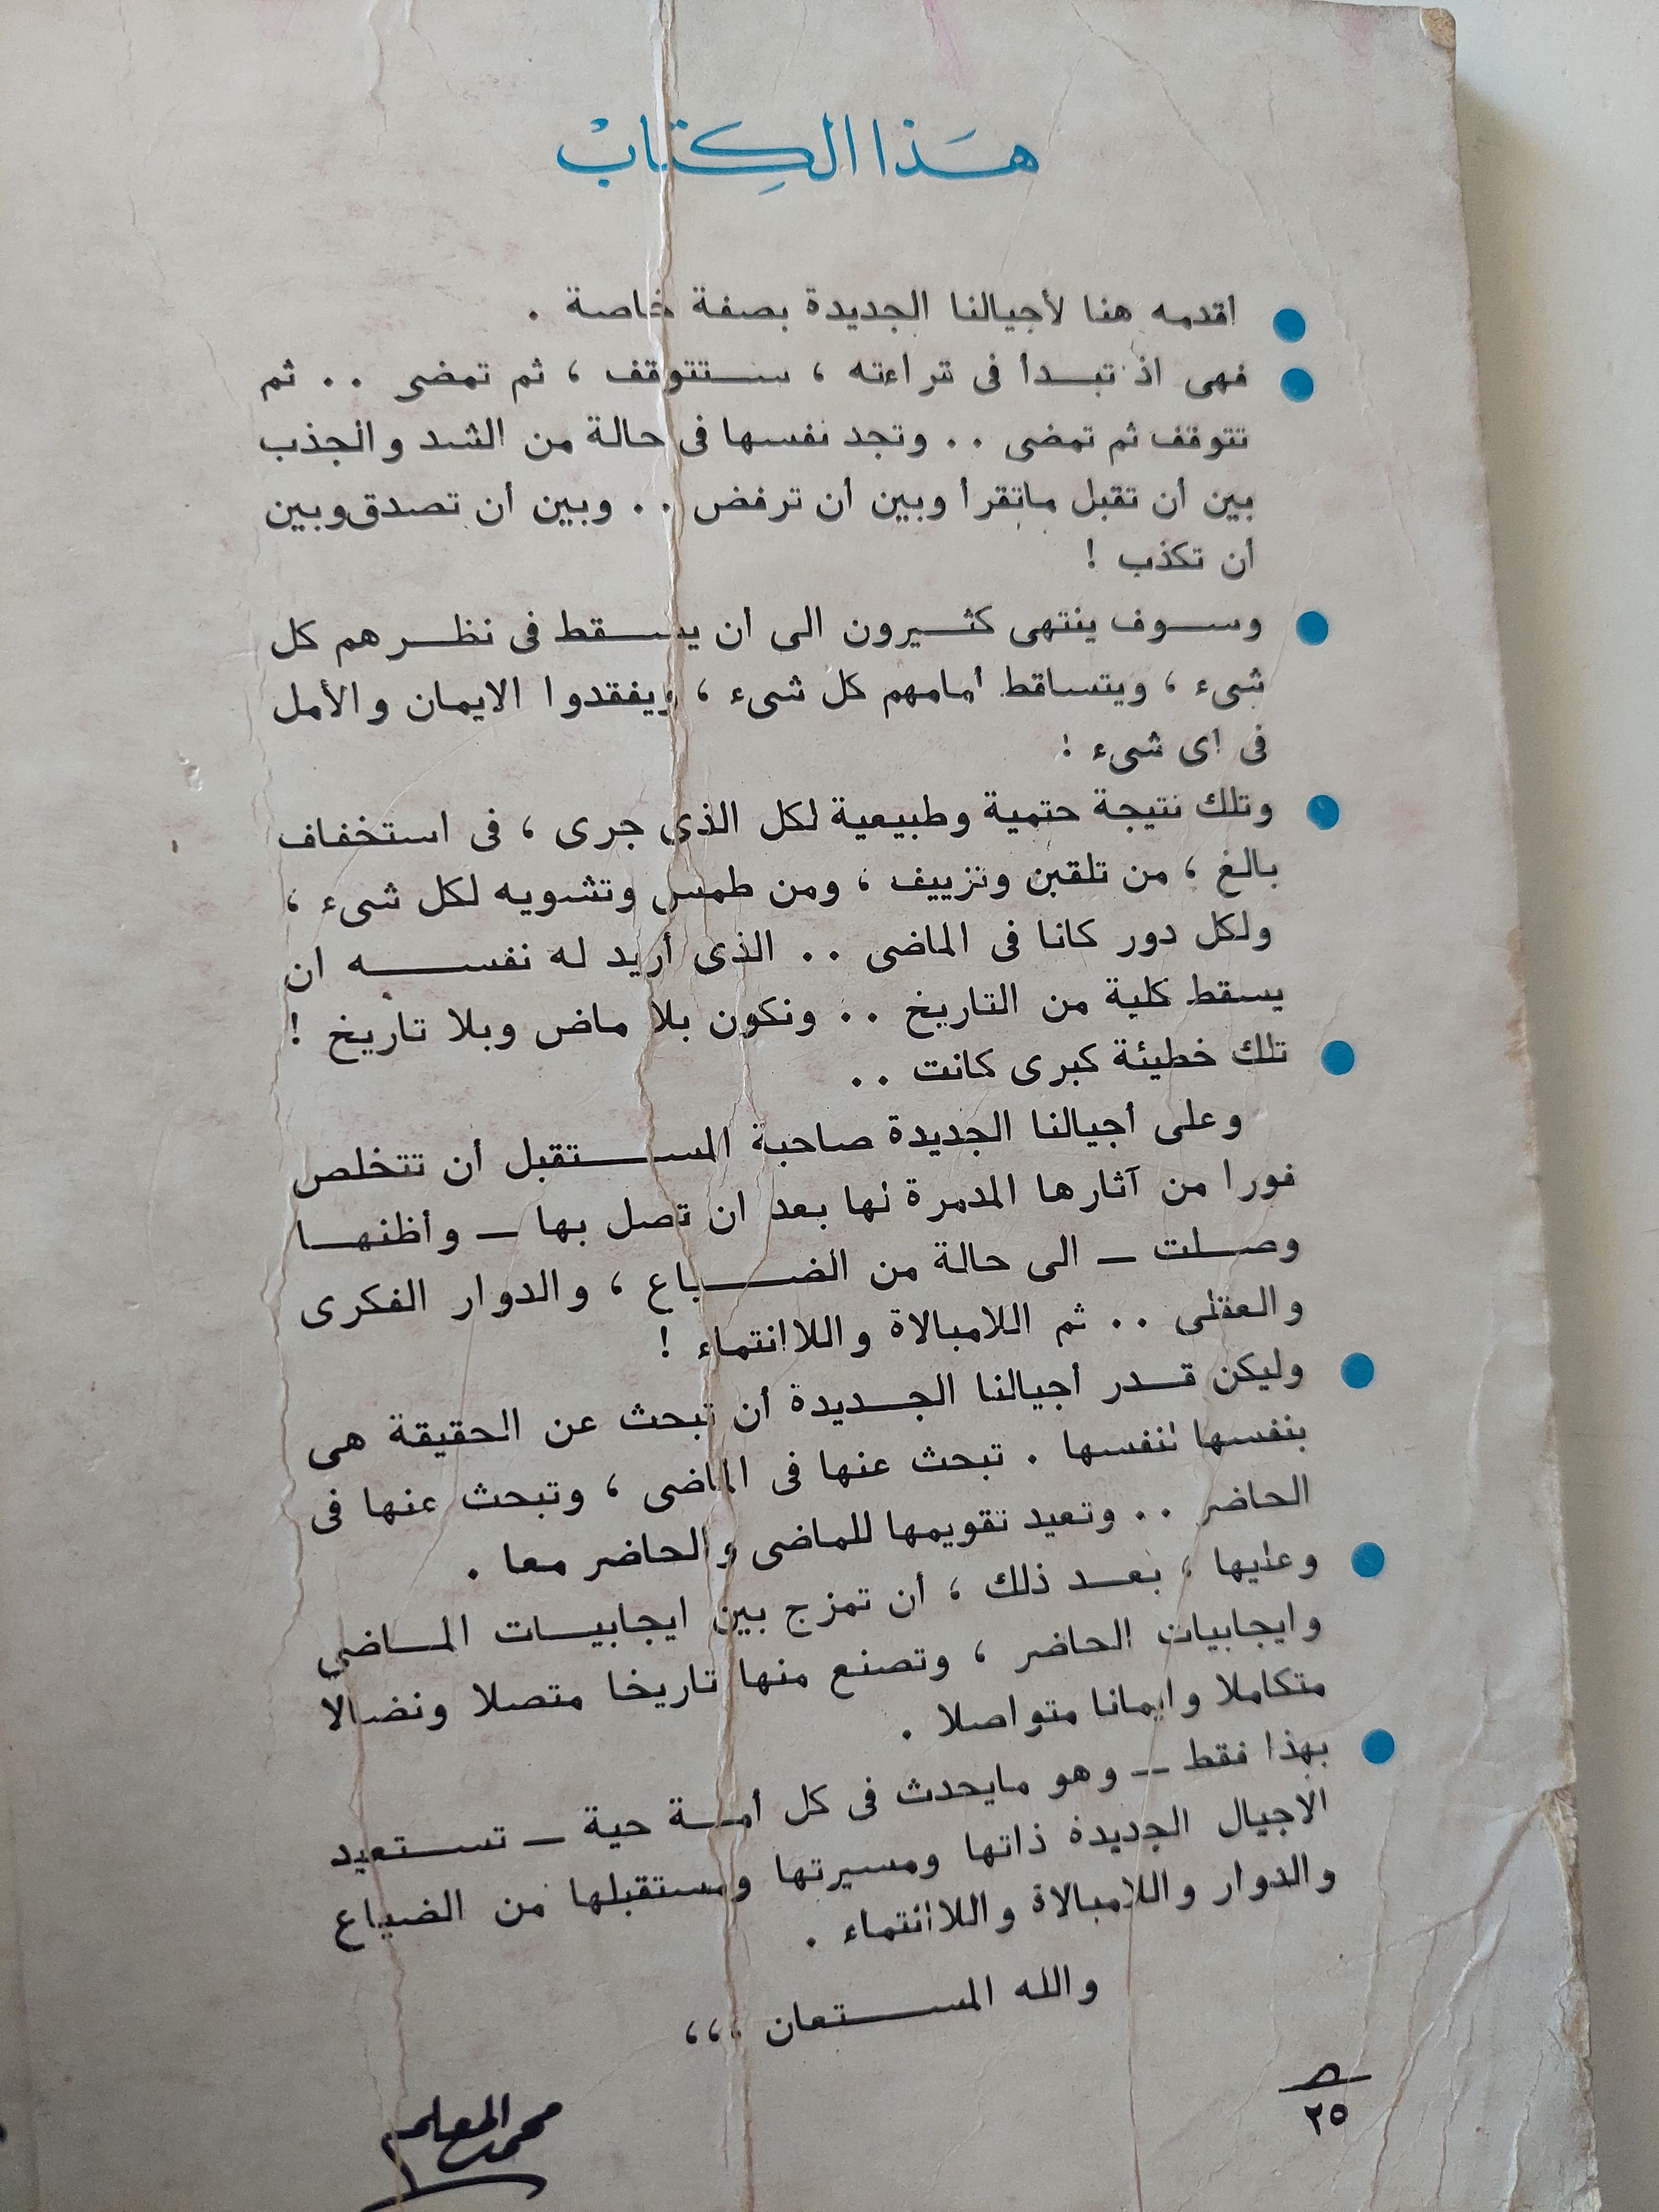 هَذا الكِتابْ
اقدمه هنا لأجيالنا الجديدة بصفة خاصة .
فهى اذ تبــدأ فى قراءته ، ســتتوقف ، ثم تمضى .. ثم
تتوقف ثم تمضى .. وتجد نفسها فى حالة من الشد والجذب
بين أن تقبل ماتقرأ وبين أن ترفض .. وبين أن تصدق وبين
أن تكذب !
وســوف ينتهى كثــيرون الى أن يســقط فى نظــرهم كل
شىء ، ويتساقط أمامهم كل شىء ، ويفقدوا الايمان والأمل
فى اى شىء !
وتلك نتيجة حتمية وطبيعية لكل الذى جرى ، فى استخفاف
بالغ ، من تلقين وتزييف ، ومن طمس وتشويه لكل شىء ،
ولكل دور كانا فى الماضى .. الذى أريد له نفســه ان
يسقط كلية من التاريخ .. ونكون بلا ماض وبلا تاريخ !
تلك خطيئة كبرى كانت ..
وعلى أجيالنا الجديدة صاحبة المســتقبل أن تتخلص
فورا من آثارها المدمرة لها بعد ان تصل بها ـ وأظنهــا
وصــلت ـ الى حالة من الضــياع ، والدوار الفكرى
والعقلى .. ثم اللامبالاة واللاانتماء !
وليكن قــدر أجيالنا الجــديدة أن تبحث عن الحقيقة هى
بنفسها لنفسها . تبحث عنها فى الماضى ، وتبحث عنها فى
الحاضر .. وتعيد تقويمها للماضى والحاضر معا .
وعليها ، بعــد ذلك ، أن تمزج بين ايجابيــات المــاضى
وايجابيات الحاضر ، وتصنع منها تاريخا متصلا ونضالا
متكاملا وايمانا متواصلا .
بهذا فقط ـ وهو مايحدث فى كل أمــة حية ـ تســتعيد
الاجيال الجديدة ذاتها ومسيرتها ومستقبلها من الضياع
والدوار واللامبالاة واللاانتماء .
والله المســتعان ،،،
محمد المعلم
٢٥